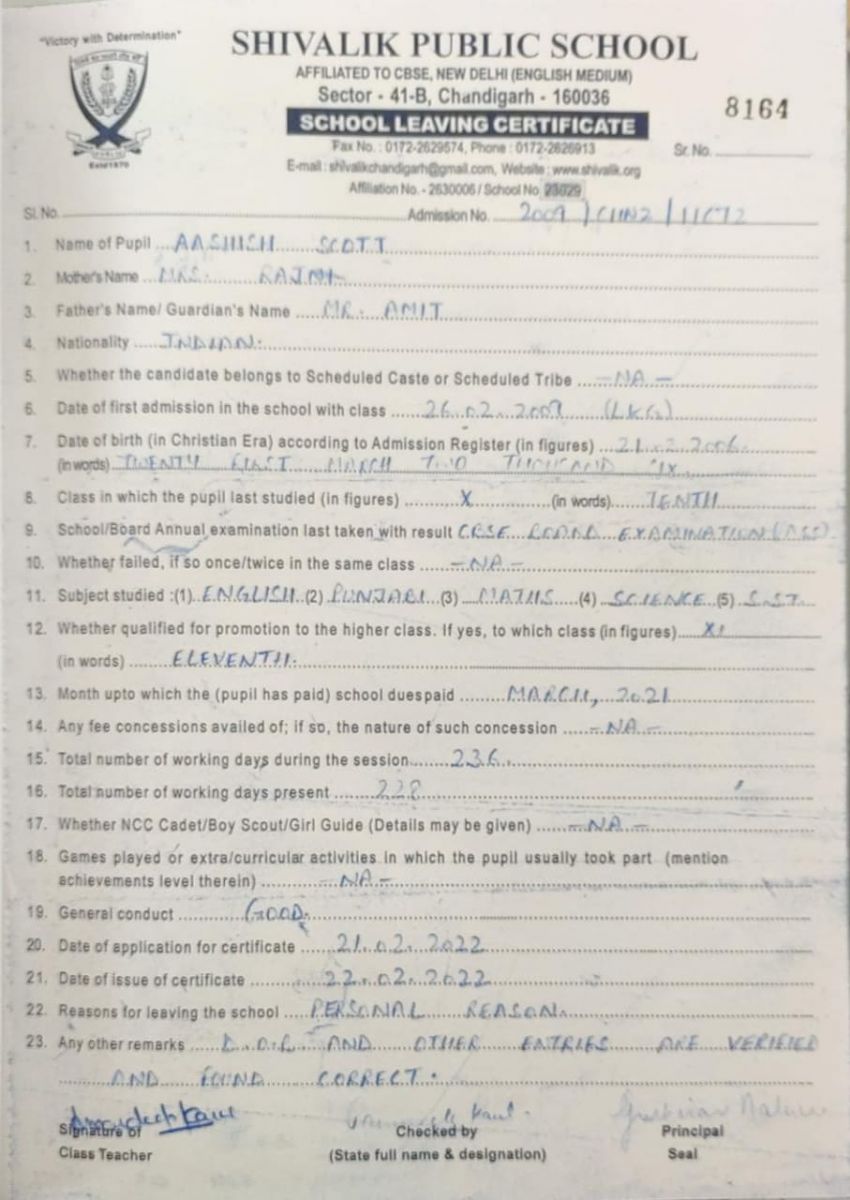 "Victory with Determination"
SHIVALIK PUBLIC SCHOOL
AFFILIATED TO CBSE, NEW DELHI (ENGLISH MEDIUM)
Sector - 41-B, Chandigarh - 160036
8164
SCHOOL LEAVING CERTIFICATE
Fax No. : 0172-2629574, Phone : 0172-2626913
Sr. No.
E-mail : shivalikchandigarh@gmail.com, Website : www.shivalik.org
Estd1970
Affiliation No. - 2630006 / School No 23029
Sl. No. Admission No. 2009
1. Name of Pupil AASHISH SCOTT
2. Mother's Name MRS. RAJNI
3. Father's Name/ Guardian's Name MR. AMIT
4. Nationality INDIAN.
5. Whether the candidate belongs to Scheduled Caste or Scheduled Tribe -NA-
6. Date of first admission in the school with class 26.02.2009 (LKG)
7. Date of birth (in Christian Era) according to Admission Register (in figures) 21.02.2006
(in words) TWENTY FIRST MARCH TWO THOUSAND SIX
8. Class in which the pupil last studied (in figures) X (in words) TENTH
9. School/Board Annual examination last taken with result CBSE BOARD EXAMINATION
10. Whether failed, if so once/twice in the same class -NA-
11. Subject studied :(1) ENGLISH (2) PUNJABI (3) MATHS (4) SCIENCE (5) S.ST.
12. Whether qualified for promotion to the higher class. If yes, to which class (in figures) XI
(in words) ELEVENTH.
13. Month upto which the (pupil has paid) school duespaid MARCH, 2021
14. Any fee concessions availed of; if so, the nature of such concession -NA-
15. Total number of working days during the session 236.
16. Total number of working days present 228
17. Whether NCC Cadet/Boy Scout/Girl Guide (Details may be given) -NA-
18. Games played or extra/curricular activities in which the pupil usually took part (mention
achievements level therein) -NA-
19. General conduct GOOD.
20. Date of application for certificate 21.02.2022
21. Date of issue of certificate 22.02.2022
22. Reasons for leaving the school PERSONAL REASON.
23. Any other remarks D.O.B AND OTHER ENTRIES ARE VERIFIED
AND FOUND CORRECT.
Signature of Checked by Principal
Class Teacher (State full name & designation) Seal